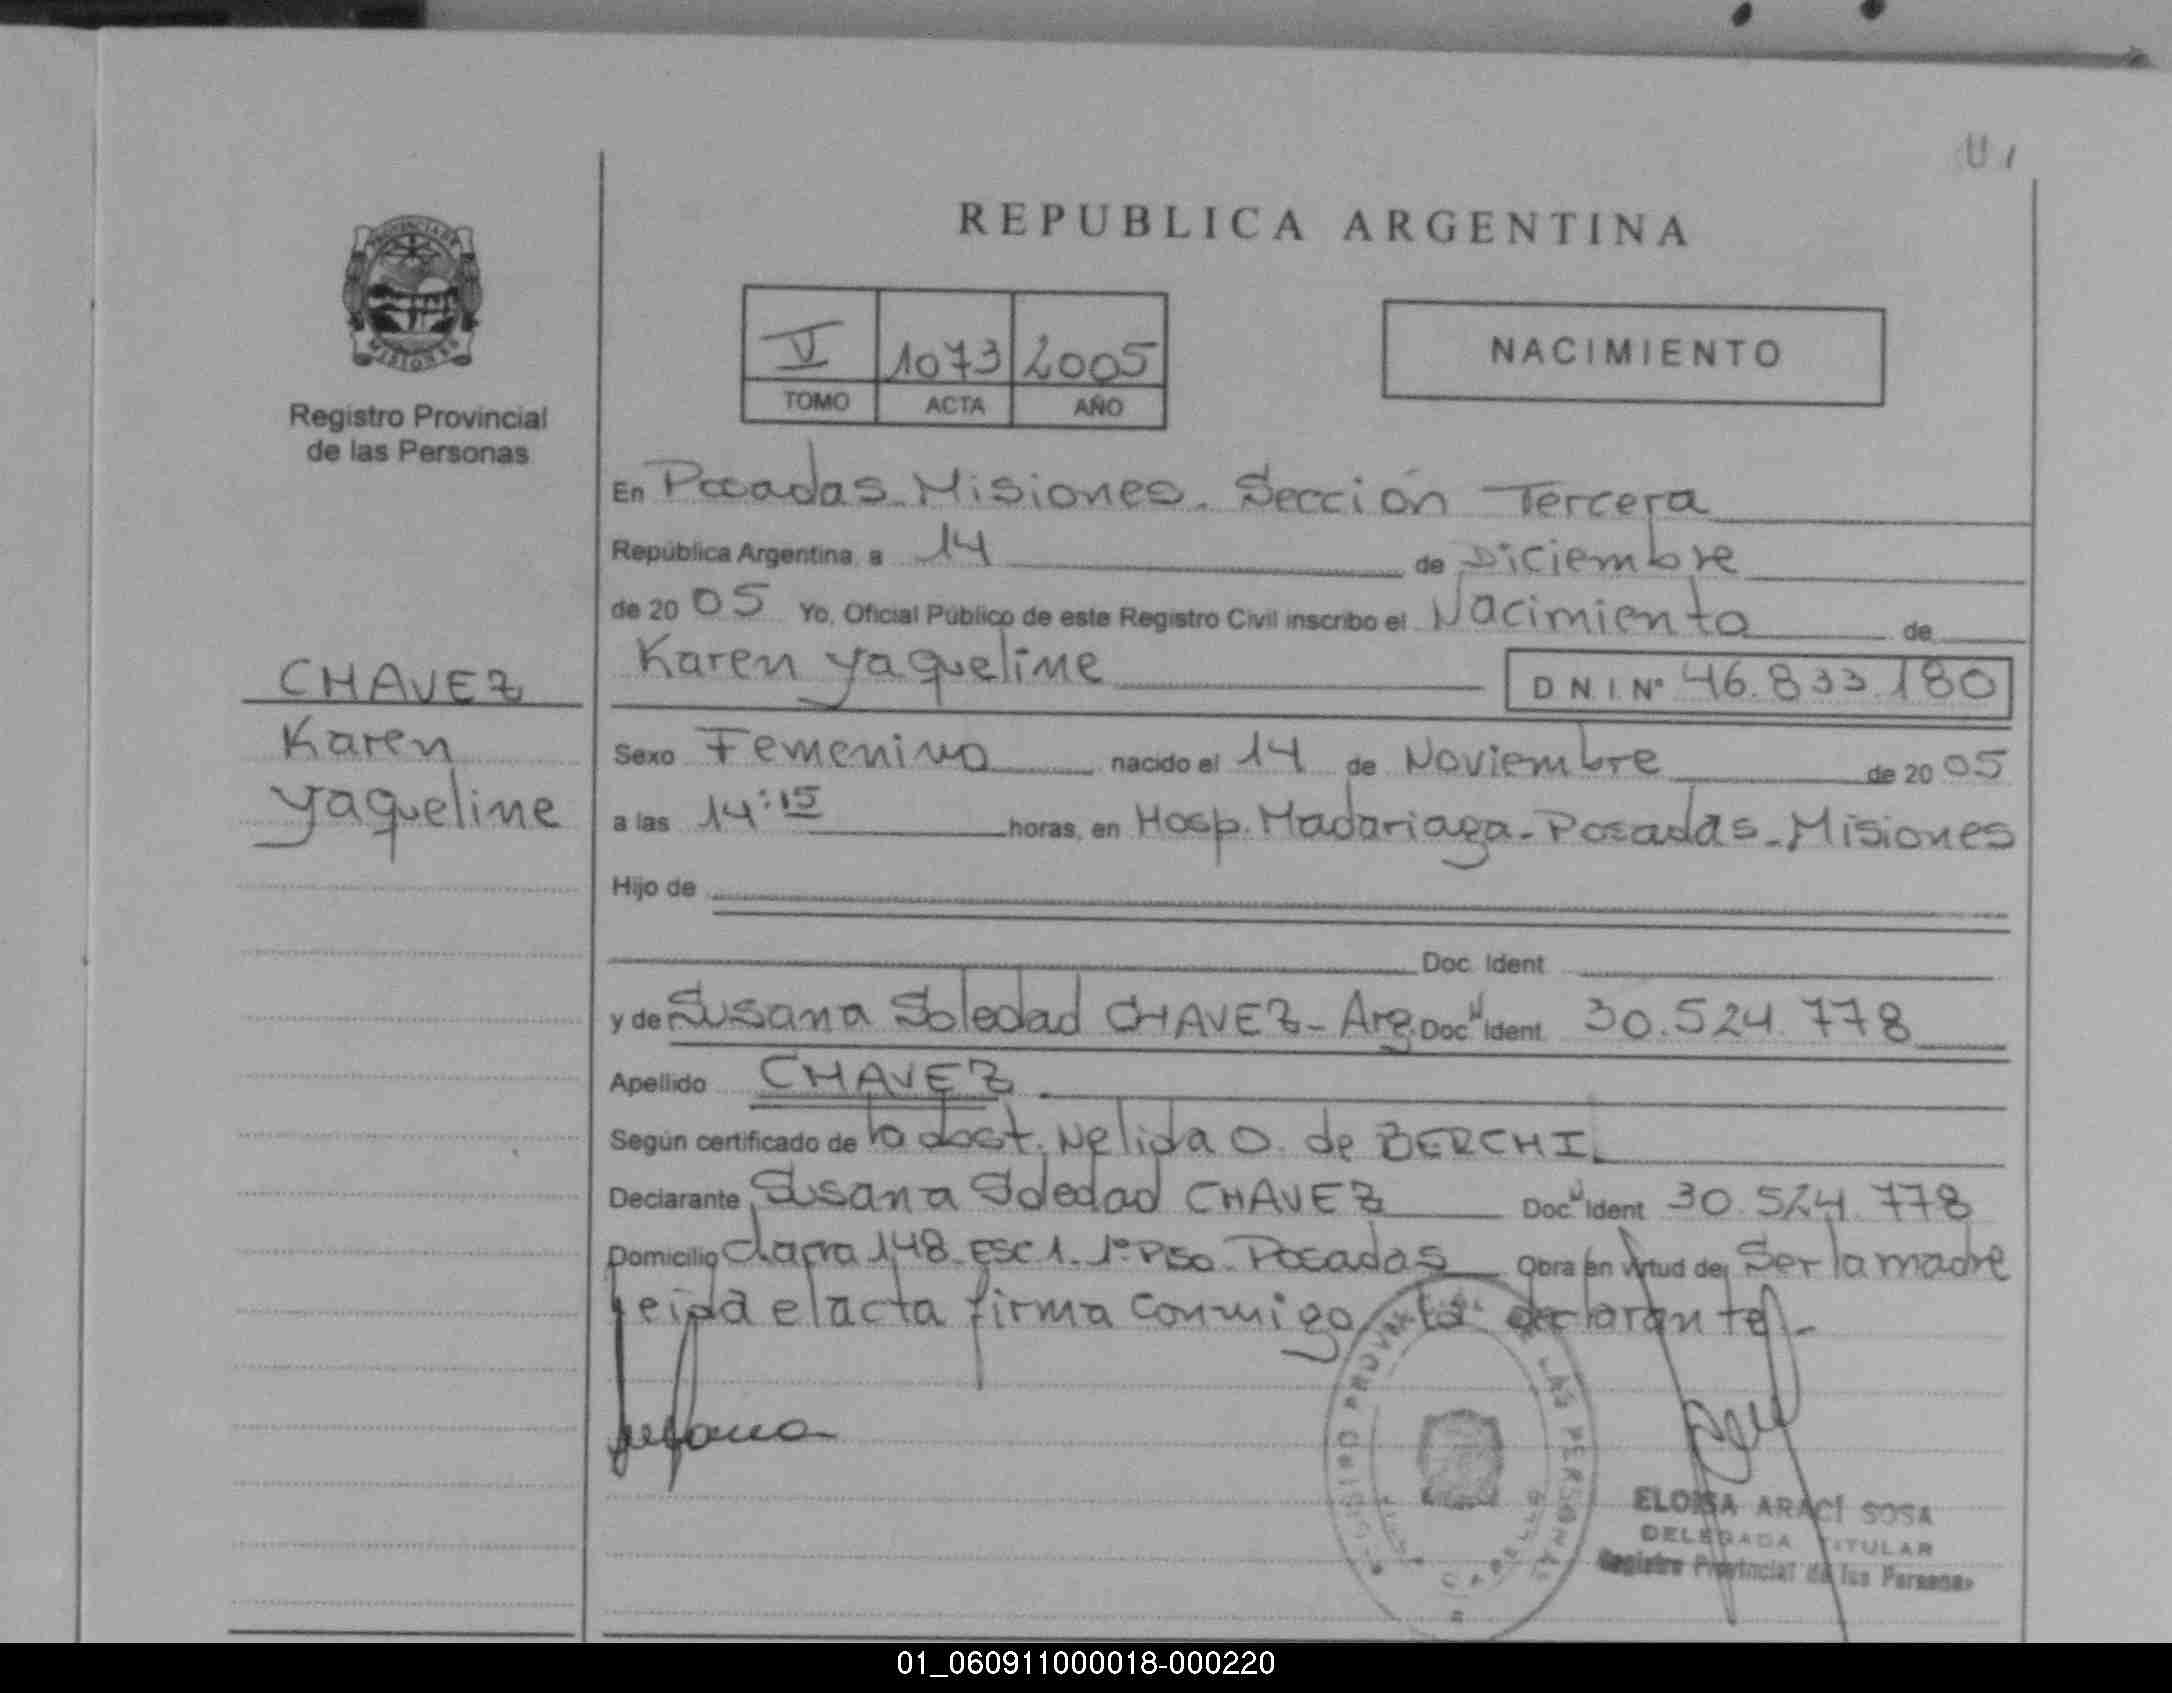 U 1
REPUBLICA ARGENTINA
PROVINCIA DE
MISIONES
Registro Provincial
de las Personas
V 1073 2005
TOMO ACTA AÑO
NACIMIENTO
En Posadas-Misiones. Sección Tercera
República Argentina, a 14 de Diciembre
de 20 05 Yo, Oficial Público de este Registro Civil inscribo el Nacimiento de
Karen yaqueline D N I. Nº 46.833.180
CHAVEZ
Karen
yaqueline
Sexo Femenino nacido el 14 de Noviembre de 20 05
a las 14:15 horas, en Hosp. Madariaga-Posadas-Misiones
Hijo de
Doc. Ident.
y de Susana Soledad CHAVEZ- Arg. Doc. Ident. 30.524.778
Apellido CHAVEZ
Según certificado de la obst. Nelida O. de BERCHI
Declarante Susana Soledad CHAVEZ Doc. Ident. 30.524.778
Domicilio 148-ESC 1. 1º PISO. Posadas Obra en virtud de Ser la madre
Leida el acta firma conmigo la declarante.-
PROVINCIAL DE LAS PERSONAS
ELOISA ARACÍ SOSA
DELEGADA TITULAR
Registro Provincial de las Personas
01_060911000018-000220